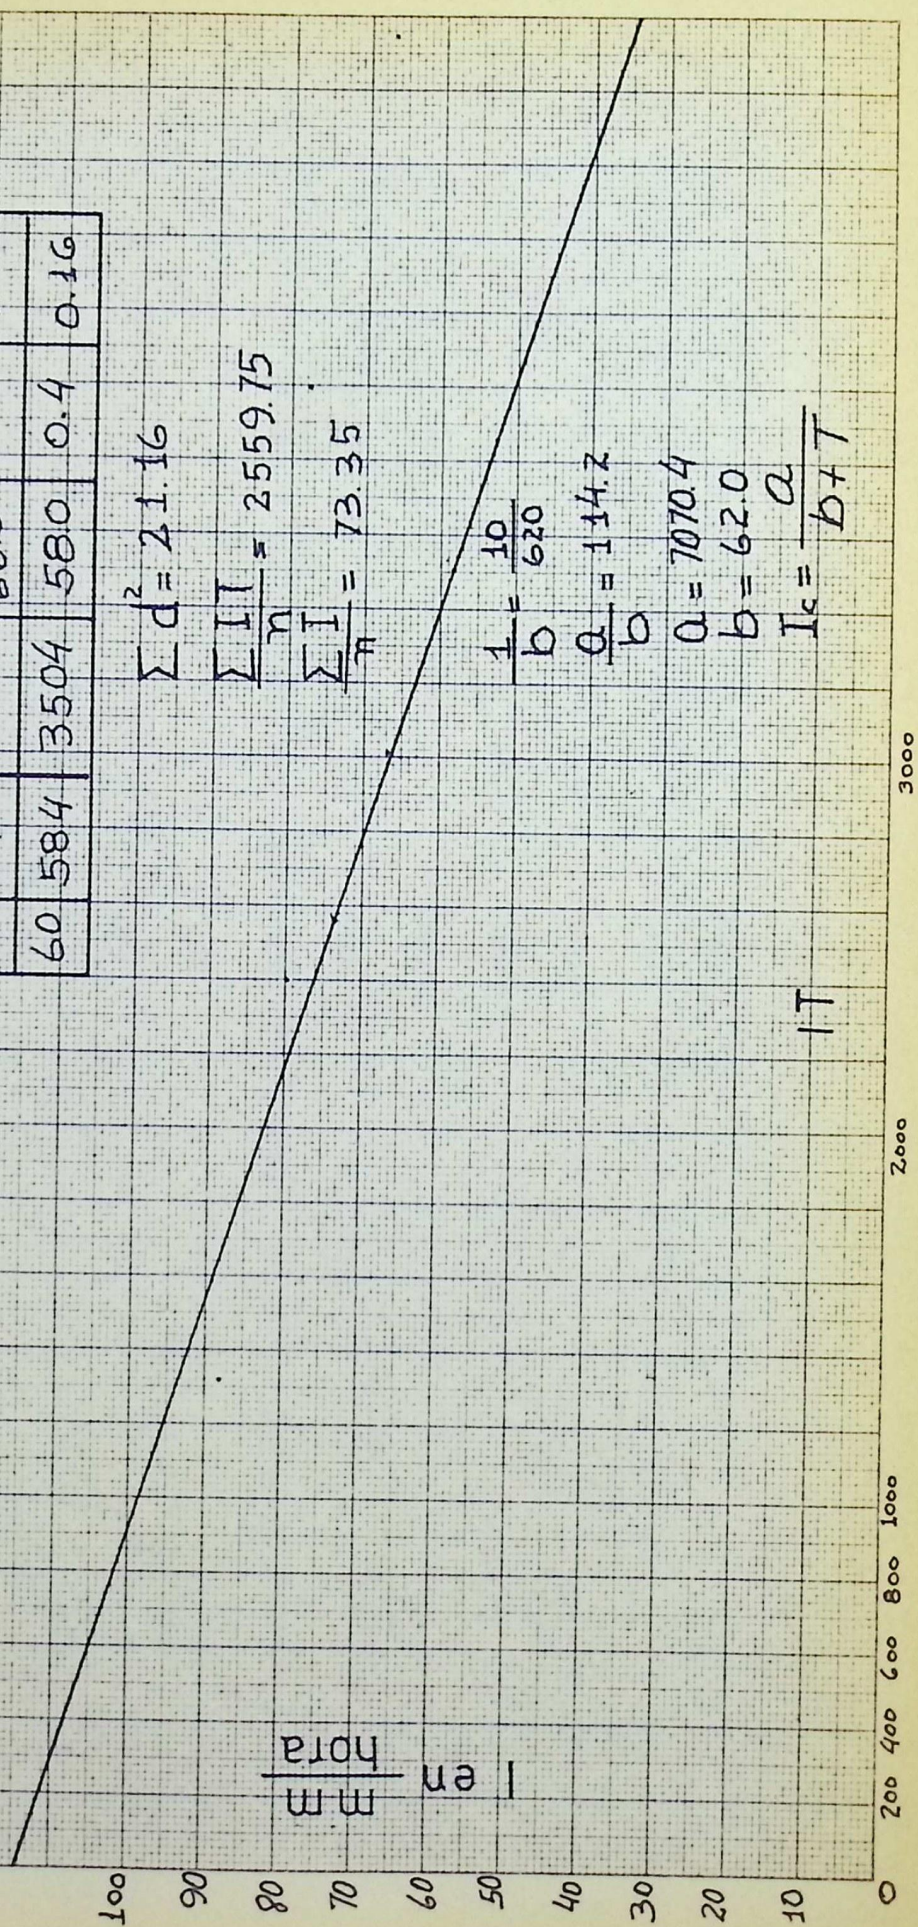 60 58.4 3504 58.0 0.4 0.16
Σ d² = 21.16
Σ IT / n = 2559.75
Σ I / n = 73.35
1/b = 10/620
a/b = 114.2
a = 7070.4
b = 62.0
Ic = a / b+T
I en mm/hora
100
90
80
70
60
50
40
30
20
10
0
200 400 600 800 1000 2000 3000
IT